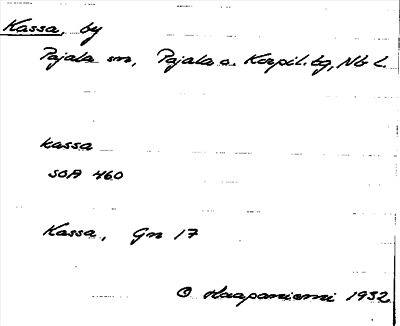 Kassa, by
Pajala sn, Pajala o. Korpil. tg, Nb L.
kassa
SOA 460
Kassa, Gn 17
O Haapaniemi 1932.